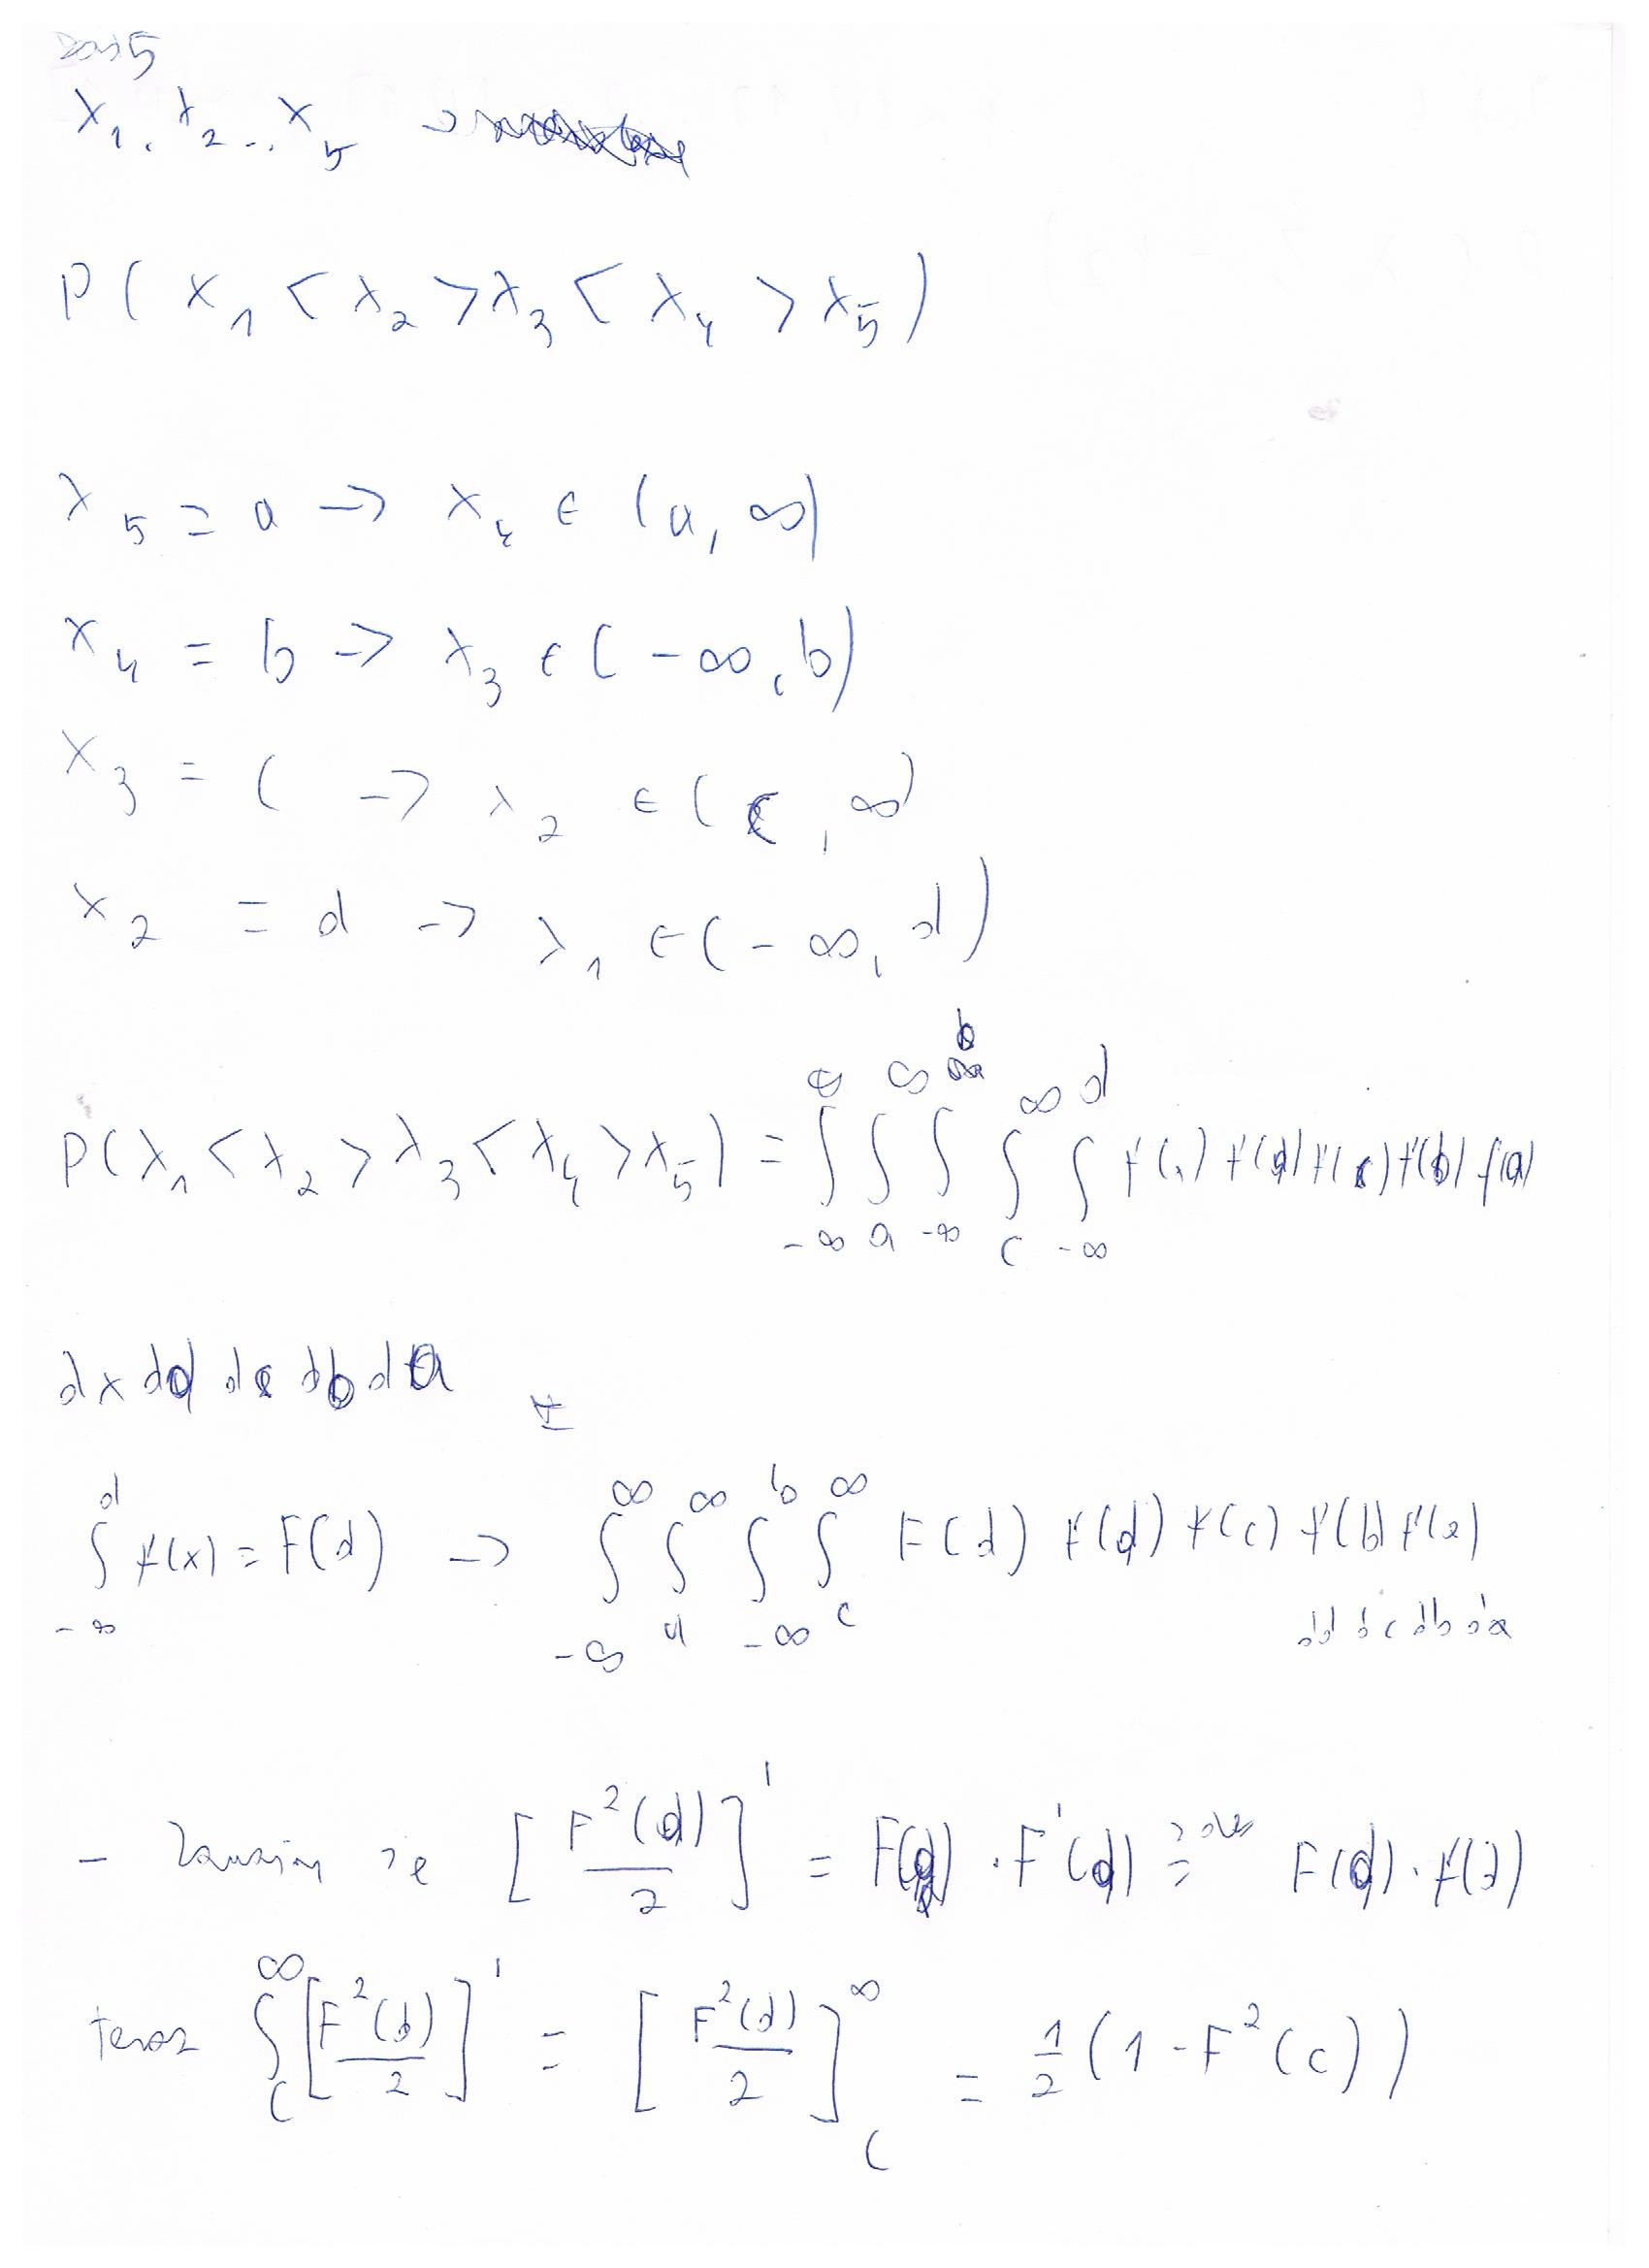 Zad 5
X₁, X₂ ... X₅
P( X₁ < X₂ > X₃ < X₄ > X₅ )
X₅ = a -> X₄ ∈ (a, ∞)
X₄ = b -> X₃ ∈ (-∞, b)
X₃ = c -> X₂ ∈ (c, ∞)
X₂ = d -> X₁ ∈ (-∞, d)
P(X₁ < X₂ > X₃ < X₄ > X₅) = ∫_{-∞}^{∞} ∫_{a}^{∞} ∫_{-∞}^{b} ∫_{c}^{∞} ∫_{-∞}^{d} f(x) f(d) f(c) f(b) f(a)
dx dd dc db da
∫_{-∞}^{d} f(x) = F(d) -> ∫_{-∞}^{∞} ∫_{a}^{∞} ∫_{-∞}^{b} ∫_{c}^{∞} F(d) f(d) f(c) f(b) f(a)
dd dc db da
- Zauważmy że [F²(d)/2]' = F(d) · F'(d) = F(d) · f(d)
teraz ∫_{c}^{∞} [F²(d)/2]' = [F²(d)/2]_{c}^{∞} = 1/2 (1 - F²(c))